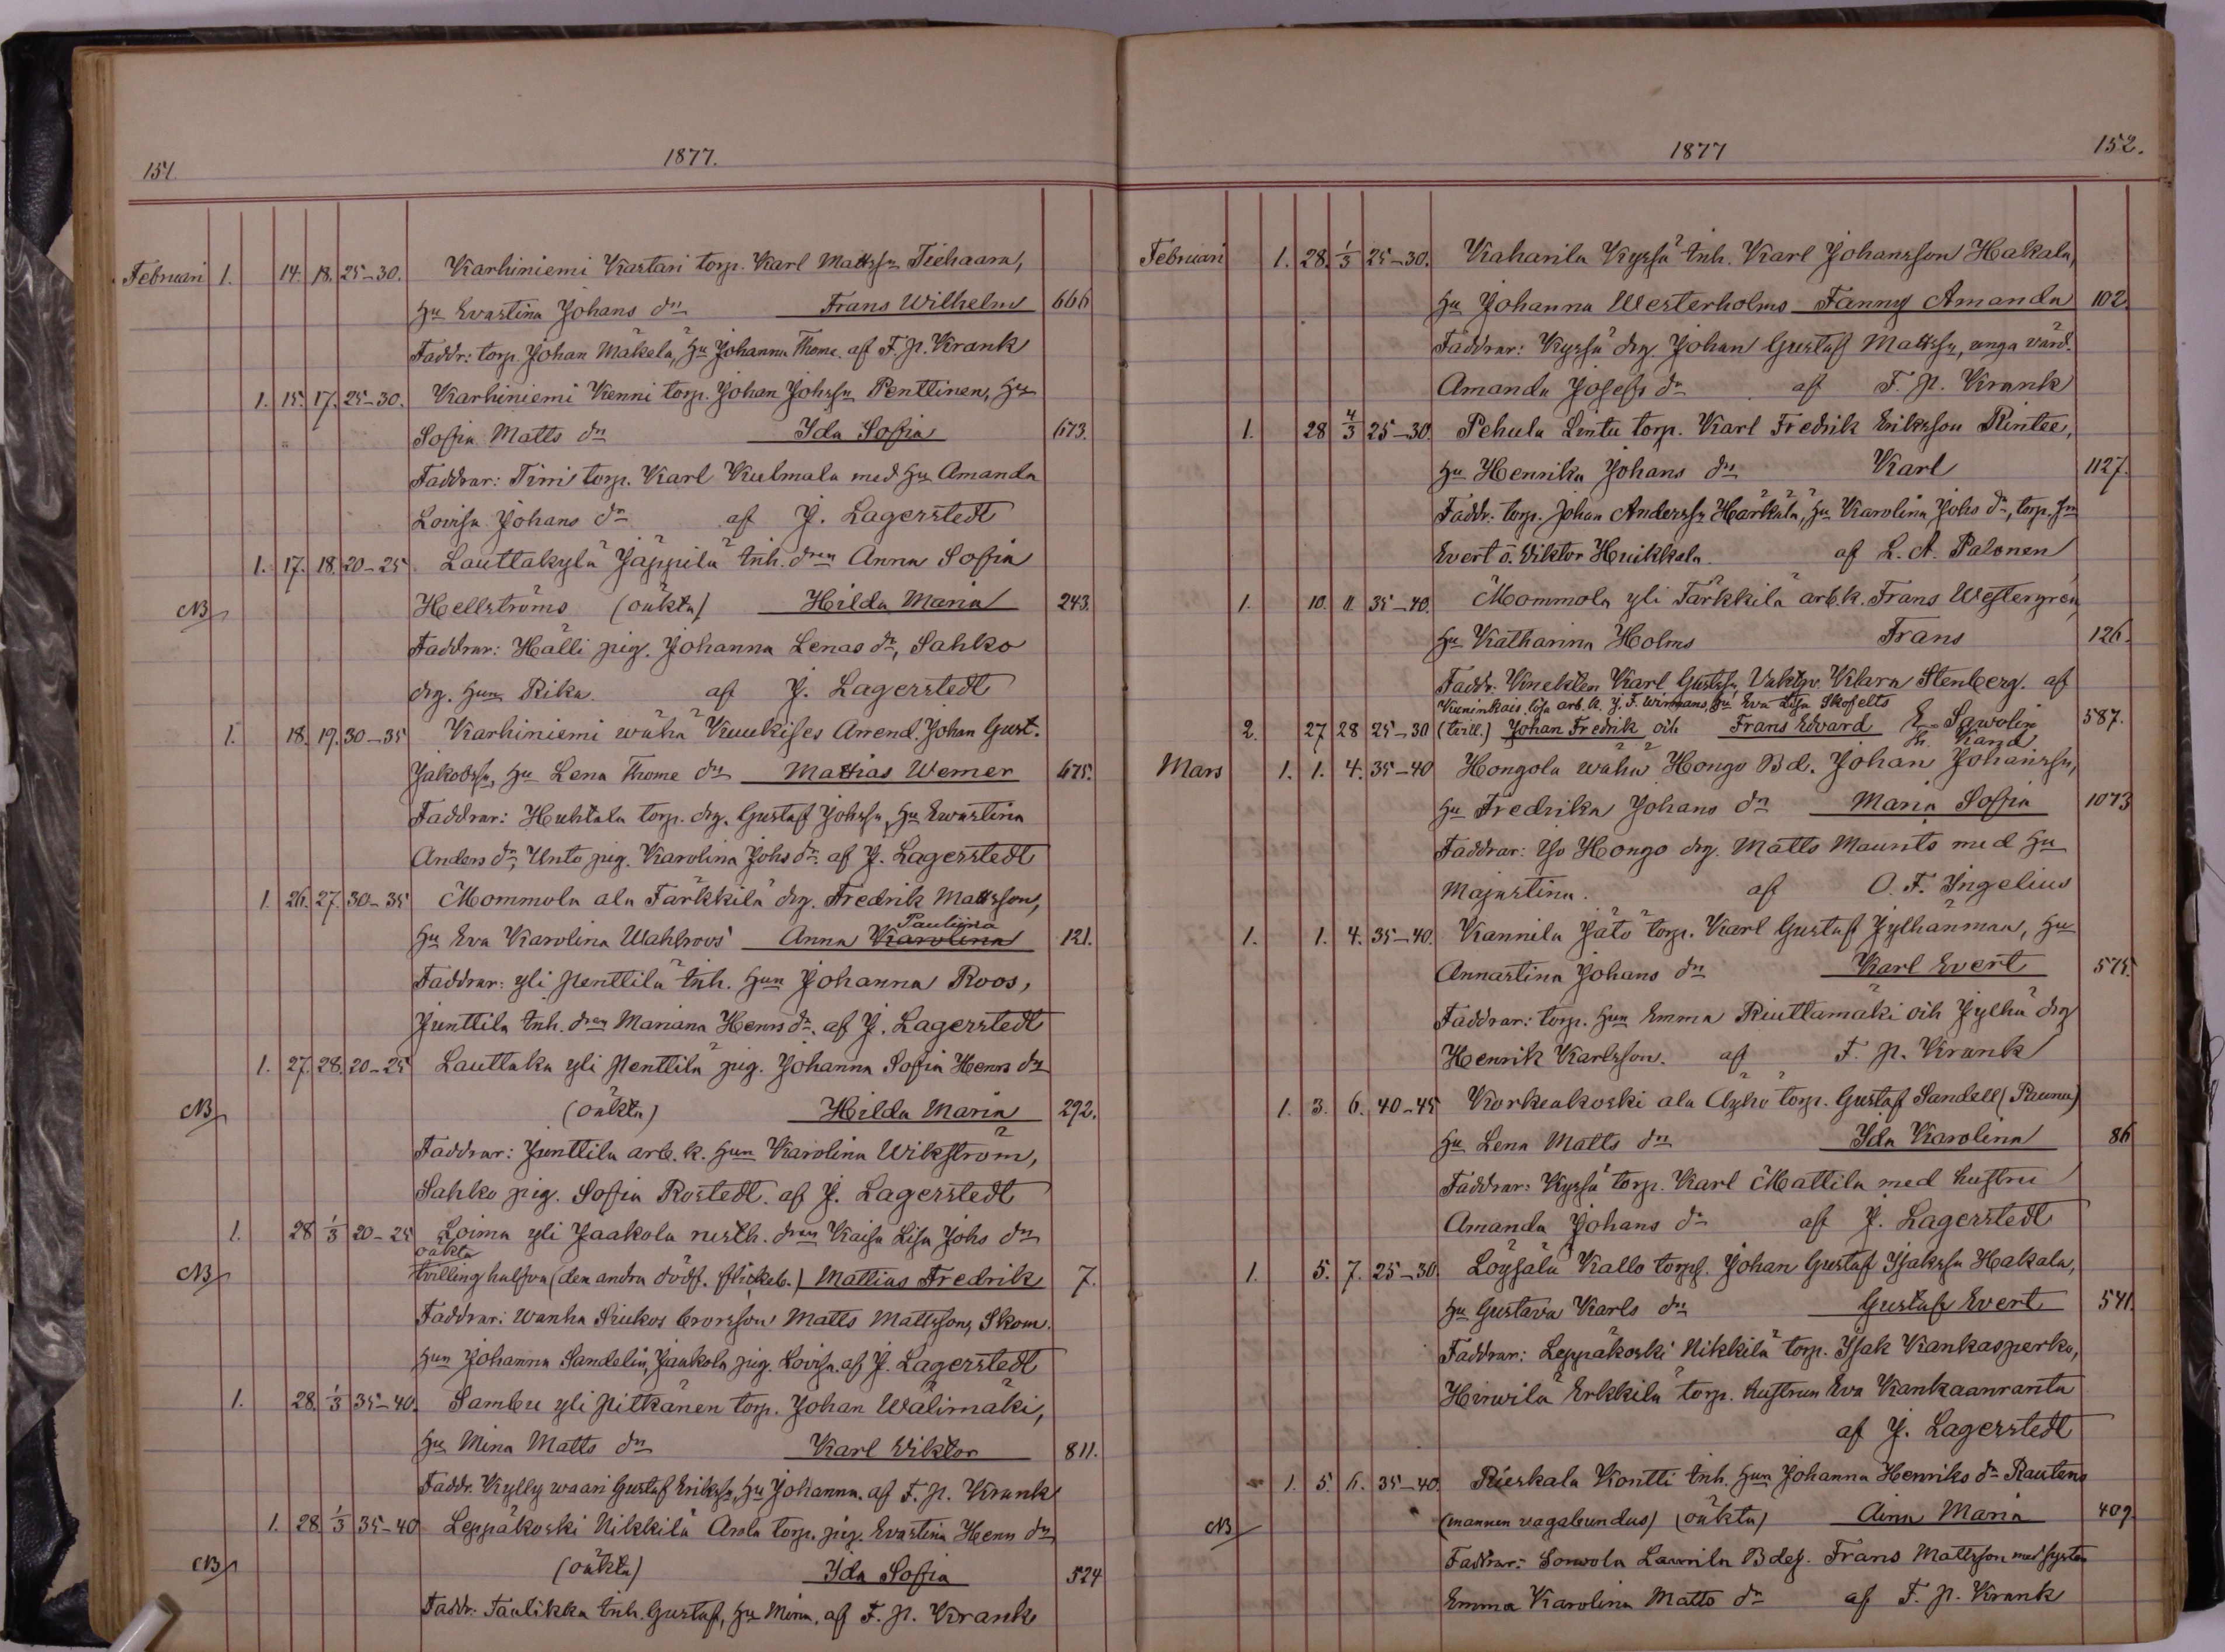 151.
1877.
Februari 1. 14. 18. 25-30. Karhiniemi Kastari torp. Karl Mattssn Tiehaara,
Hu Evastina Johans dr Frans Wilhelm 666
Faddr: torp. Johan Mäkelä, Hu Johanna Thome. af F. P. Krank
1. 15. 17. 25-30. Karhiniemi Kenni torp. Johan Johssn Penttinen, Hu
Sofia Matts dr Ida Sofia 673.
Faddrar: Timi torp. Karl Kulmala med Hu Amanda
Lovisa Johans dr af J. Lagerstedt
1. 17. 18. 20-25 Lauttakylä Jäppilä inh. drn Anna Sofia
NB Hellströms (oäkta) Hilda Maria 243.
Faddrar: Hälli pig. Johanna Lenas dr, Sahko
drg. Hun Rika. af J. Lagerstedt
1. 18. 19. 30-35 Karhiniemi wäha Kuukises Arrend. Johan Gust.
Jakobssn, Hu Lena Thome dr Mattias Werner 675.
Faddrar: Huhtala torp. drg. Gustaf Johssn, Hu Ewastina
Anders dr, Unto pig. Karolina Johs dr. af J. Lagerstedt
1. 26. 27. 30-35 Mommola ala Tärkkilä drg. Fredrik Mattsson,
Paulina
Hu Eva Karolina Wahlroos Anna Karolina 121.
Faddrar: yli Penttilä inh. Hun Johanna Roos,
Junttila inh. drn Mariana Henrs dr. af J. Lagerstedt
1. 27. 28. 20-25 Lauttaka yli Penttilä pig. Johanna Sofia Henrs dr
NB (oäkta) Hilda Maria 292.
Faddrar: Junttila arb. k. Hun Karolina Wikström,
Sahko pig. Sofia Rostedt. af J. Lagerstedt
1. 28 1/3 20-25 Loima yli Jaakola drn Kaisa Lisa Johs dr
oäkta
NB tvilling halfva (den andra dödf. flickeb.) Mattias Fredrik 7.
Faddrar: Wanha Matts Mattsson, Skom.
Hun Johanna Sandelin, Jaakola pig. Lovisa. af J. Lagerstedt
1. 28. 1/3 35-40. Sambu yli Pitkänen torp. Johan Wälimäki,
Hu Mina Matts dr Karl Viktor 811.
Faddr. Kylly waari Gustaf Erikssn, Hu Johanna. af F. P. Krank
1. 28 1/3 35-40 Leppäkoski Nikkilä Arola torp. pig. Evastina Henr dr
NB (oäkta) Ida Sofia 524
Faddr: Taulikka inh. Gustaf, Hu Mina. af F. P. Krank
1877
152.
Februari 1. 28. 1/3 25-30. Kaharila Kyssä inh. Karl Johansson Hakala,
Hu Johanna Westerholms Fanny Amanda 102.
Faddrar: Kyssä drg. Johan Gustaf Mattssn, unga värd.
Amanda Josefs dr af F. P. Krank
1. 28 4/3 25-30. Pehula Lintu torp. Karl Fredrik Eriksson Rintee,
Hu Henrika Johans dr Karl 1127.
Faddr: torp. Johan Anderssn Härkälä, Hu Karolina Johs dr, torp. sn
Evert o. Viktor Huikkala. af L. A. Palonen
1. 10. 11. 35-40. Mommola yli Tärkkilä arb.k. Frans Westergren,
Hu Katharina Holms Frans 126.
Faddr: Knekten Karl Gustfsn, Klara Stenberg. af
Kuninkais. lösa arb. k. J. F. Wirmans, Hu Eva Lisa Skofelts
2. 27 28 25-30 (tvill.) Johan Fredrik och Frans Edvard E. Sawolin 587.
Kand
Mars 1. 1. 4. 35-40 Hongola wähä Hongo Bd. Johan Johanssn,
Hu Fredrika Johans dr Maria Sofia 1073
Faddrar: Iso Hongo drg. Matts Maunts med Hu
Majastina. af O. F. Ingelius
1. 1. 4. 35-40. Kannila Jätö torp. Karl Gustaf Jylhänmaa, Hu
Annastina Johans dr Karl Evert 575.
Faddrar: torp. Hun Emma Riuttamäki och Jylhä drg
Henrik Karlsson. af F. P. Krank
1. 3. 6. 40-45 Korkeakoski ala Äyhö torp. Gustaf Sandell (Raunu)
Hu Lena Matts dr Ida Karolina 86
Faddrar: Kyssä torp. Karl Mattila med hustru
Amanda Johans dr af J. Lagerstedt
1. 5. 7. 25-30. Löysälä Kallo torp. Johan Gustaf Isakssn Hakala,
Hu Gustava Karls dr Gustaf Evert 541.
Faddrar: Leppäkoski Nikkilä torp. Isak Kankasperko,
Hirwilä Erkkilä torp. hustrun Eva Kankaanranta
af J. Lagerstedt
1. 5. 6. 35-40. Rieskala Kontti inh. Hun Johanna Henriks dr Rautens
NB (mannen vagabundus) (oäkta) Aina Maria 409.
Faddrar: Sonnola Laurila Bdes. Frans Mattsson med syster
Emma Karolina Matts dr af F. P. Krank